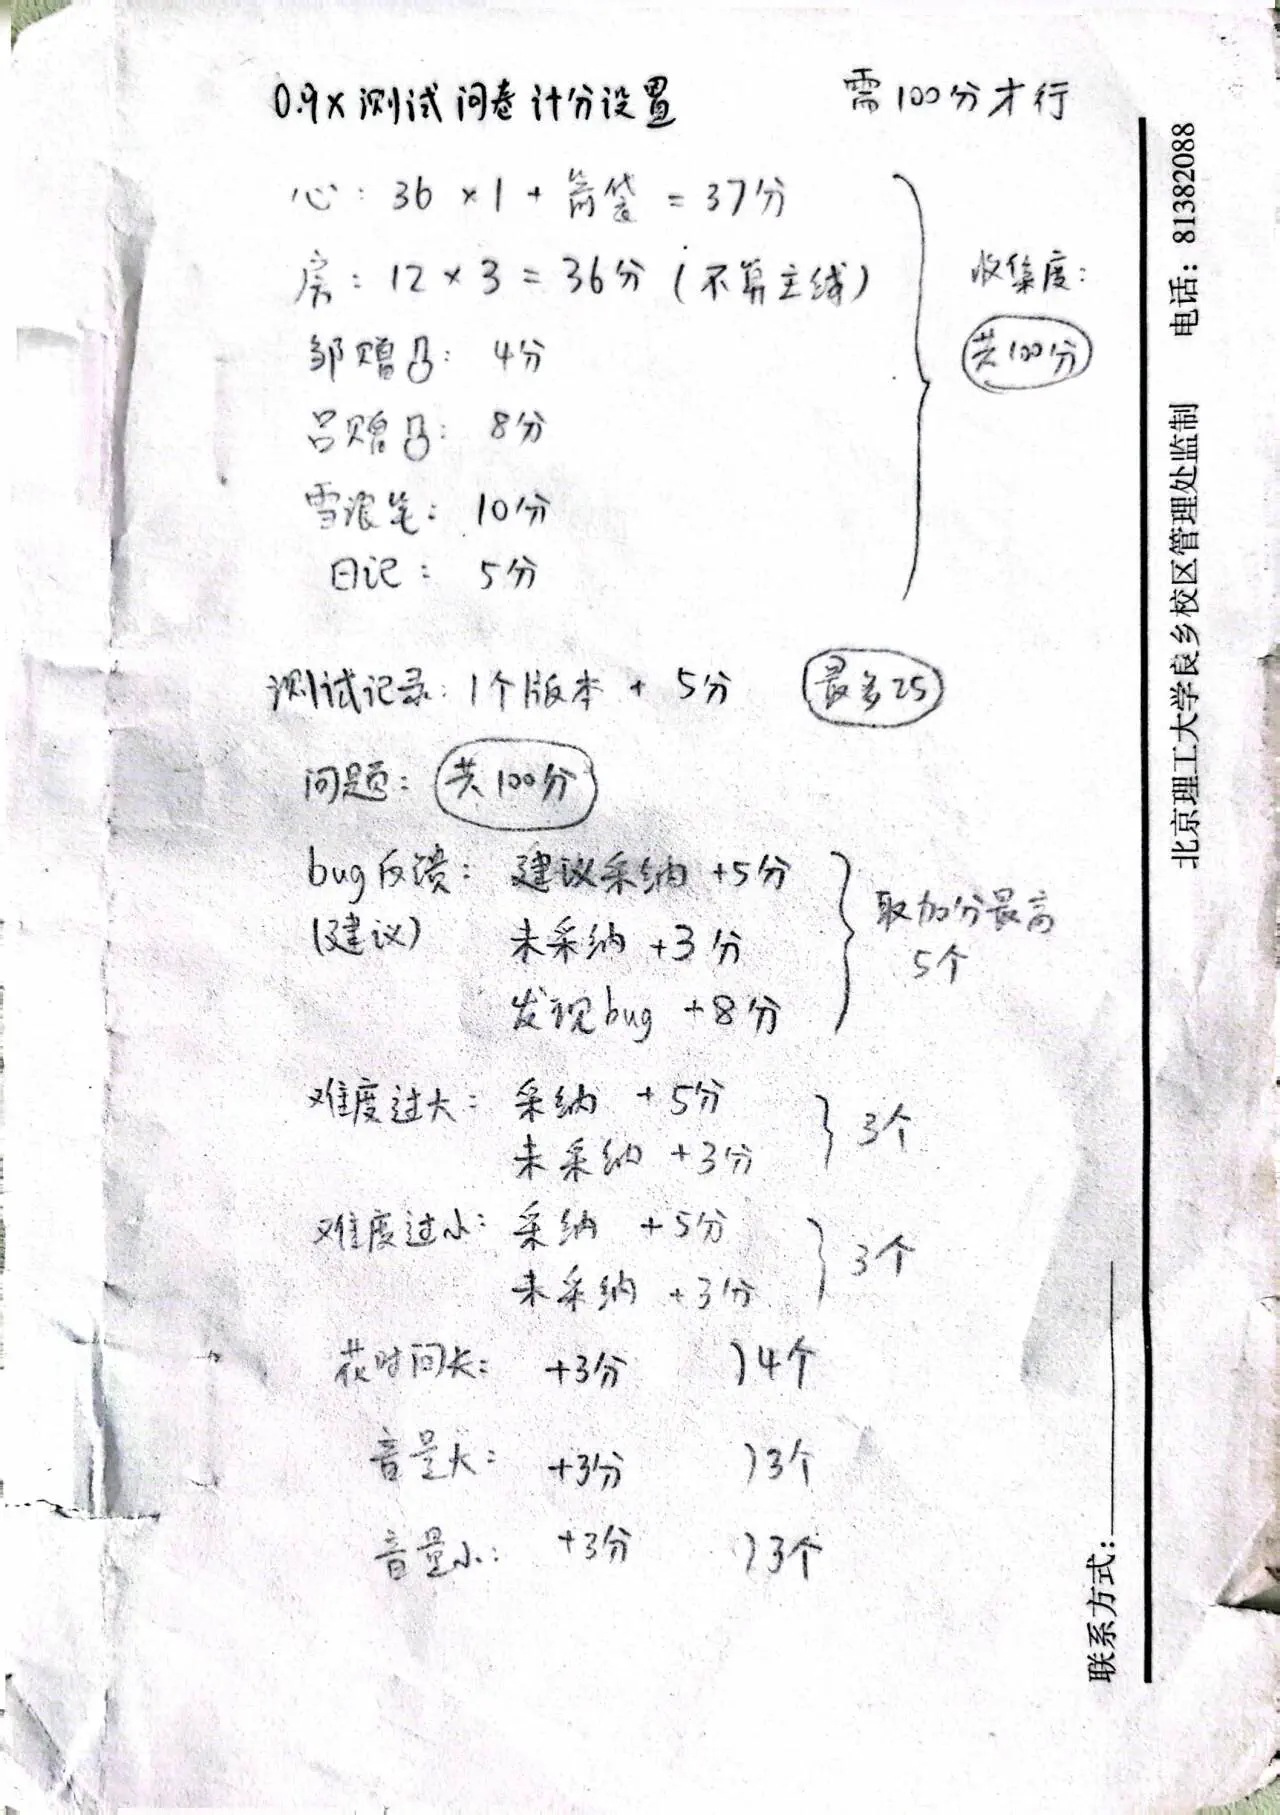 0.9x测试问卷计分设置 需100分才行
心: 36×1+箭袋=37分
房: 12×3=36分(不算主线)
收集度:
共100分
邹赠凸: 4分
吕赠凸: 8分
雪浪笔: 10分
日记: 5分
测试记录: 1个版本+5分 最多25
问题: 共100分
bug反馈: 建议采纳+5分
(建议) 未采纳+3分
发现bug+8分
取加分最高
5个
难度过大: 采纳+5分
未采纳+3分
3个
难度过小: 采纳+5分
未采纳+3分
3个
花时间长: +3分 )4个
音量大: +3分 )3个
音量小: +3分 )3个
北京理工大学良乡校区管理处监制 电话: 81382088
联系方式: